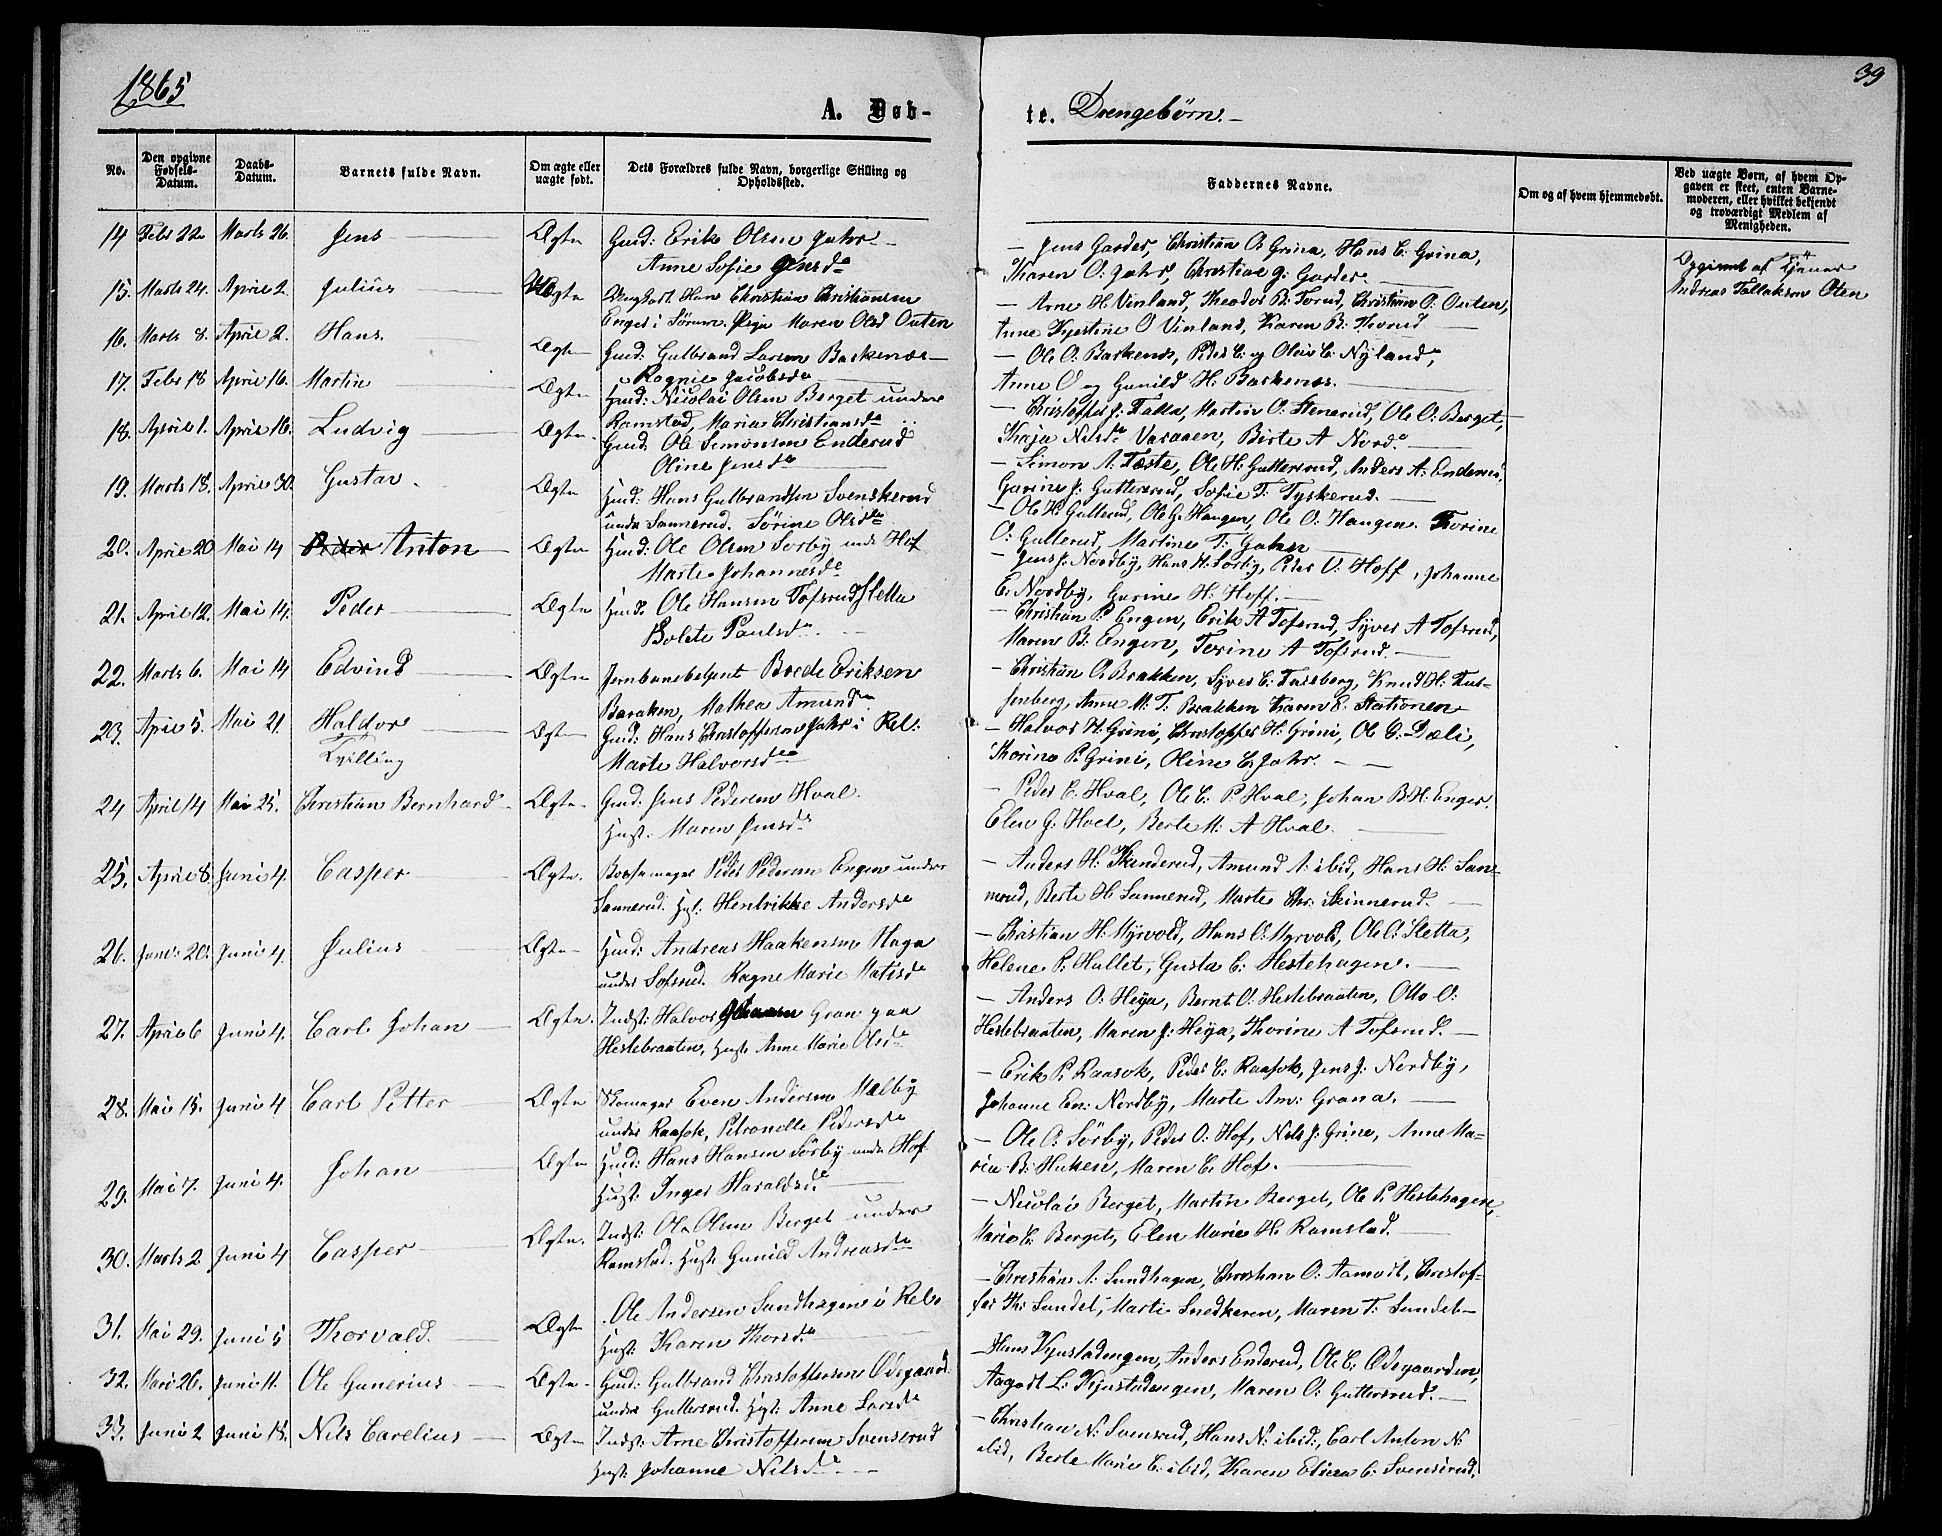 1865
39
A. Døb-
te. Drengebørn.
No.
Den opgivne Fødsels-Datum.
Daabs-Datum.
Barnets fulde Navn.
Om ægte eller uægte født.
Dets Forældres fulde Navn, borgerlige Stilling og Opholdssted.
Faddernes Navne.
Om og af hvem hjemmedøbt.
Ved uægte Børn, af hvem Opgaven er skeet, enten Barnemoderen, eller hvilket bekjendt og troværdigt Medlem af Menigheden.
14 Febr 22 Marts 26. Jens Ægte Gmd: Erik Olsen Jahr
Anne Sofie Jensdr
– Jens Garder, Christian O. Grina, Hans C. Grina,
Karen O. Jahr, Christine J. Garder.
15. Marts 24. April 2. Julius Uægte Ungkarl Han Christian Christiansen
Enger i Sørum. Pige Maren Olsd Outen
– Arne H. Vinland, Theodor B. Torud, Christian O. Outen,
Anne Kjerstine O Vinland, Karen B. Thorud
Opgivet af Tjener
Andreas Tollaksen Oten
16. Marts 8. April 2. Hans. Ægte Gmd: Gulbrand Larsen Baskenæs
Rognie Jacobsdr
– Ole O. Baskenæs, Peder C. og Oleis C. Nyland,
Anne O og Gunild H. Baskenæs.
17. Febr 18 April 16. Martin Ægte Hmd: Nicolai Olsen Berget under
Ramstad, Maria Christiansdr
– Christoffer J. Falla, Martin O. Stenerud, Ole O. Berget,
Kaja Nilsdr Varaaen, Birte A Nord.
18. April 1. April 16. Ludvig Ægte. Gmd. Ole Simonsen Enderud
Oline Jensdr
– Simon A. Tæste, Ole H. Guttersrud, Anders A. Enderud,
Garine J. Guttersrud, Sofie T. Tyskerud.
19. Marts 18. April 30. Gustav. Ægte Hmd: Hans Gulbrandsen Svenskerud
under Sannerud. Sørine Olsdr
– Ole H. Gullerud, Ole G. Haugen, Ole O. Haugen. Thorine
O. Gullerud, Martine T. Jahr
20. April 20 Mai 14 Peder Anton Ægte Hmd: Ole Olsen Sørby unde Hof
Marte Johannesdr
– Jens J. Nordby, Hans H. Sørby, Peder O. Hoff, Johanne
E. Nordby, Gurine H. Hoff.
21. April 12. Mai 14. Peder Ægte Hmd. Ole Hansen Tofsrud Sletta
Bolete Paulsdr.
– Christian P. Engen, Erik A Tofsrud, Syver A Tofsrud,
Maren B. Engen, Torine A Tofsrud.
22. Marts 6. Mai 14 Edvind Ægte Jernbanebetjent Brede Eriksen
Baraken, Mathea Amundr
– Christian O. Brakken, Syver C. Fuleberg, Knud H. Fut-
senberg, Anne M. T. Brakken Karen E. Stationen
23. April 5. Mai 21. Haldor
Tvilling Ægte Gmd: Hans Christoffersen Jahr i Rel:
Marte Halvorsdr
– Halvor H. Grini, Christoffer H. Grini, Ole C. Dæli,
Thorine P. Grini, Oline C. Jahr.
24 April 14 Mai 25. Christian Bernhard Ægte Gmd: Jens Pedersen Hval
Hust: Maren Jensdr
– Peder C. Hval, Ole C. P. Hval, Johan B H. Enger,
Elen G. Hoel, Berte M. A Hval.
25. April 8. Juni 4. Casper Ægte. Børsemager Peder Pedersen Engen under
Sannerud. Hust: Henrikke Andersdr
– Anders H. Skinderud, Amund A. ibid, Hans H. San-
nerud, Berte H Sannerud, Marte Chr. Skinnerud.
26. Janu: 20. Juni 4. Julius Ægte Hmd: Andreas Haakensen Haga
under Tofsrud. Ragne Marie Matisdr
– Christian H. Myrvold, Hans O. Myrvold, Ole O. Sletta,
Helene P. Hullet, Gusta C. Hestehagen.
27. April 6 Juni 4. Carl Johan Ægte. Indst: Halvor Johansen Gran paa
Hestebraaten, Hust: Anne Marie Olsdr
– Anders O. Heya, Bernt O. Hestebraaten, Otto O.
Hestebraaten, Maren J. Heya, Thorine A Tofsrud.
28. Mai 15. Juni 4 Carl Petter Ægte Skomager Even Andersen Malby
under Raasok, Petronelle Pedersdr
– Erik P. Raasok, Peder C. Raasok, Jens J. Nordby,
Johanne En: Nordby, Marte Am: Grana.
29. Mai 7. Juni 4. Johan Ægte Hmd: Hans Hansen Sørby unde Hof
Hust: Inger Haraldsdr.
– Ole O. Sørby, Peder O. Hof, Nils J. Grine, Anne Ma-
rie B. Huken, Maren C. Hof.
30. Marts 2 Juni 4 Casper Ægte. Indst: Ole Olsen Berget under
Ramstad. Hust: Gunild Andreasdr
– Nicolai Berget, Martin Berget, Ole P. Hestehagen,
Marie C. Berget, Elen Marie H. Ramstad.
31. Mai 29. Juni 5 Thorvald. Ægte Ole Andersen Sundhagen i Rel.
Hust: Karen Thorsdr
– Christian A. Sundhagen, Christian O. Aamodt, Christof-
fer Th: Sundet, Marte Snedkeren, Maren T. Sundet
32. Mai 26. Juni 11. Ole Gunerius Ægte Gmd: Gulbrand Christoffersen Ødegaard
under Guttersrud. Hust: Anne Larsdr
– Hans Kjustadengen, Anders Enderud, Ole C. Ødegaarden,
Aagodt L. Kjustadengen, Maren O. Guttersrud.
33. Juni 2 Juni 18. Nils Carelius Ægte Indst: Arne Christoffersen Svenserud
Hust: Johanne Nilsdr
– Christian N. Svensrud, Hans N. ibid:, Carl Anton N.
ibid, Berte Marie C. ibid, Karen Elisea C. Svensrud.